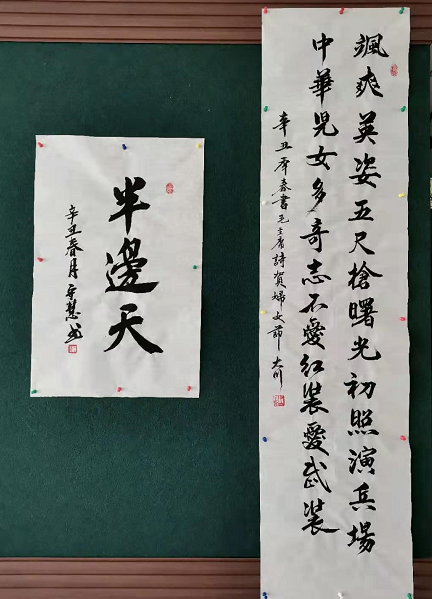 颯爽英姿五尺槍曙光初照演兵場
中華兒女多奇志不愛紅裝愛武裝
辛丑年春書毛主席詩賀婦女節 大川
半邊天
辛丑春月 書